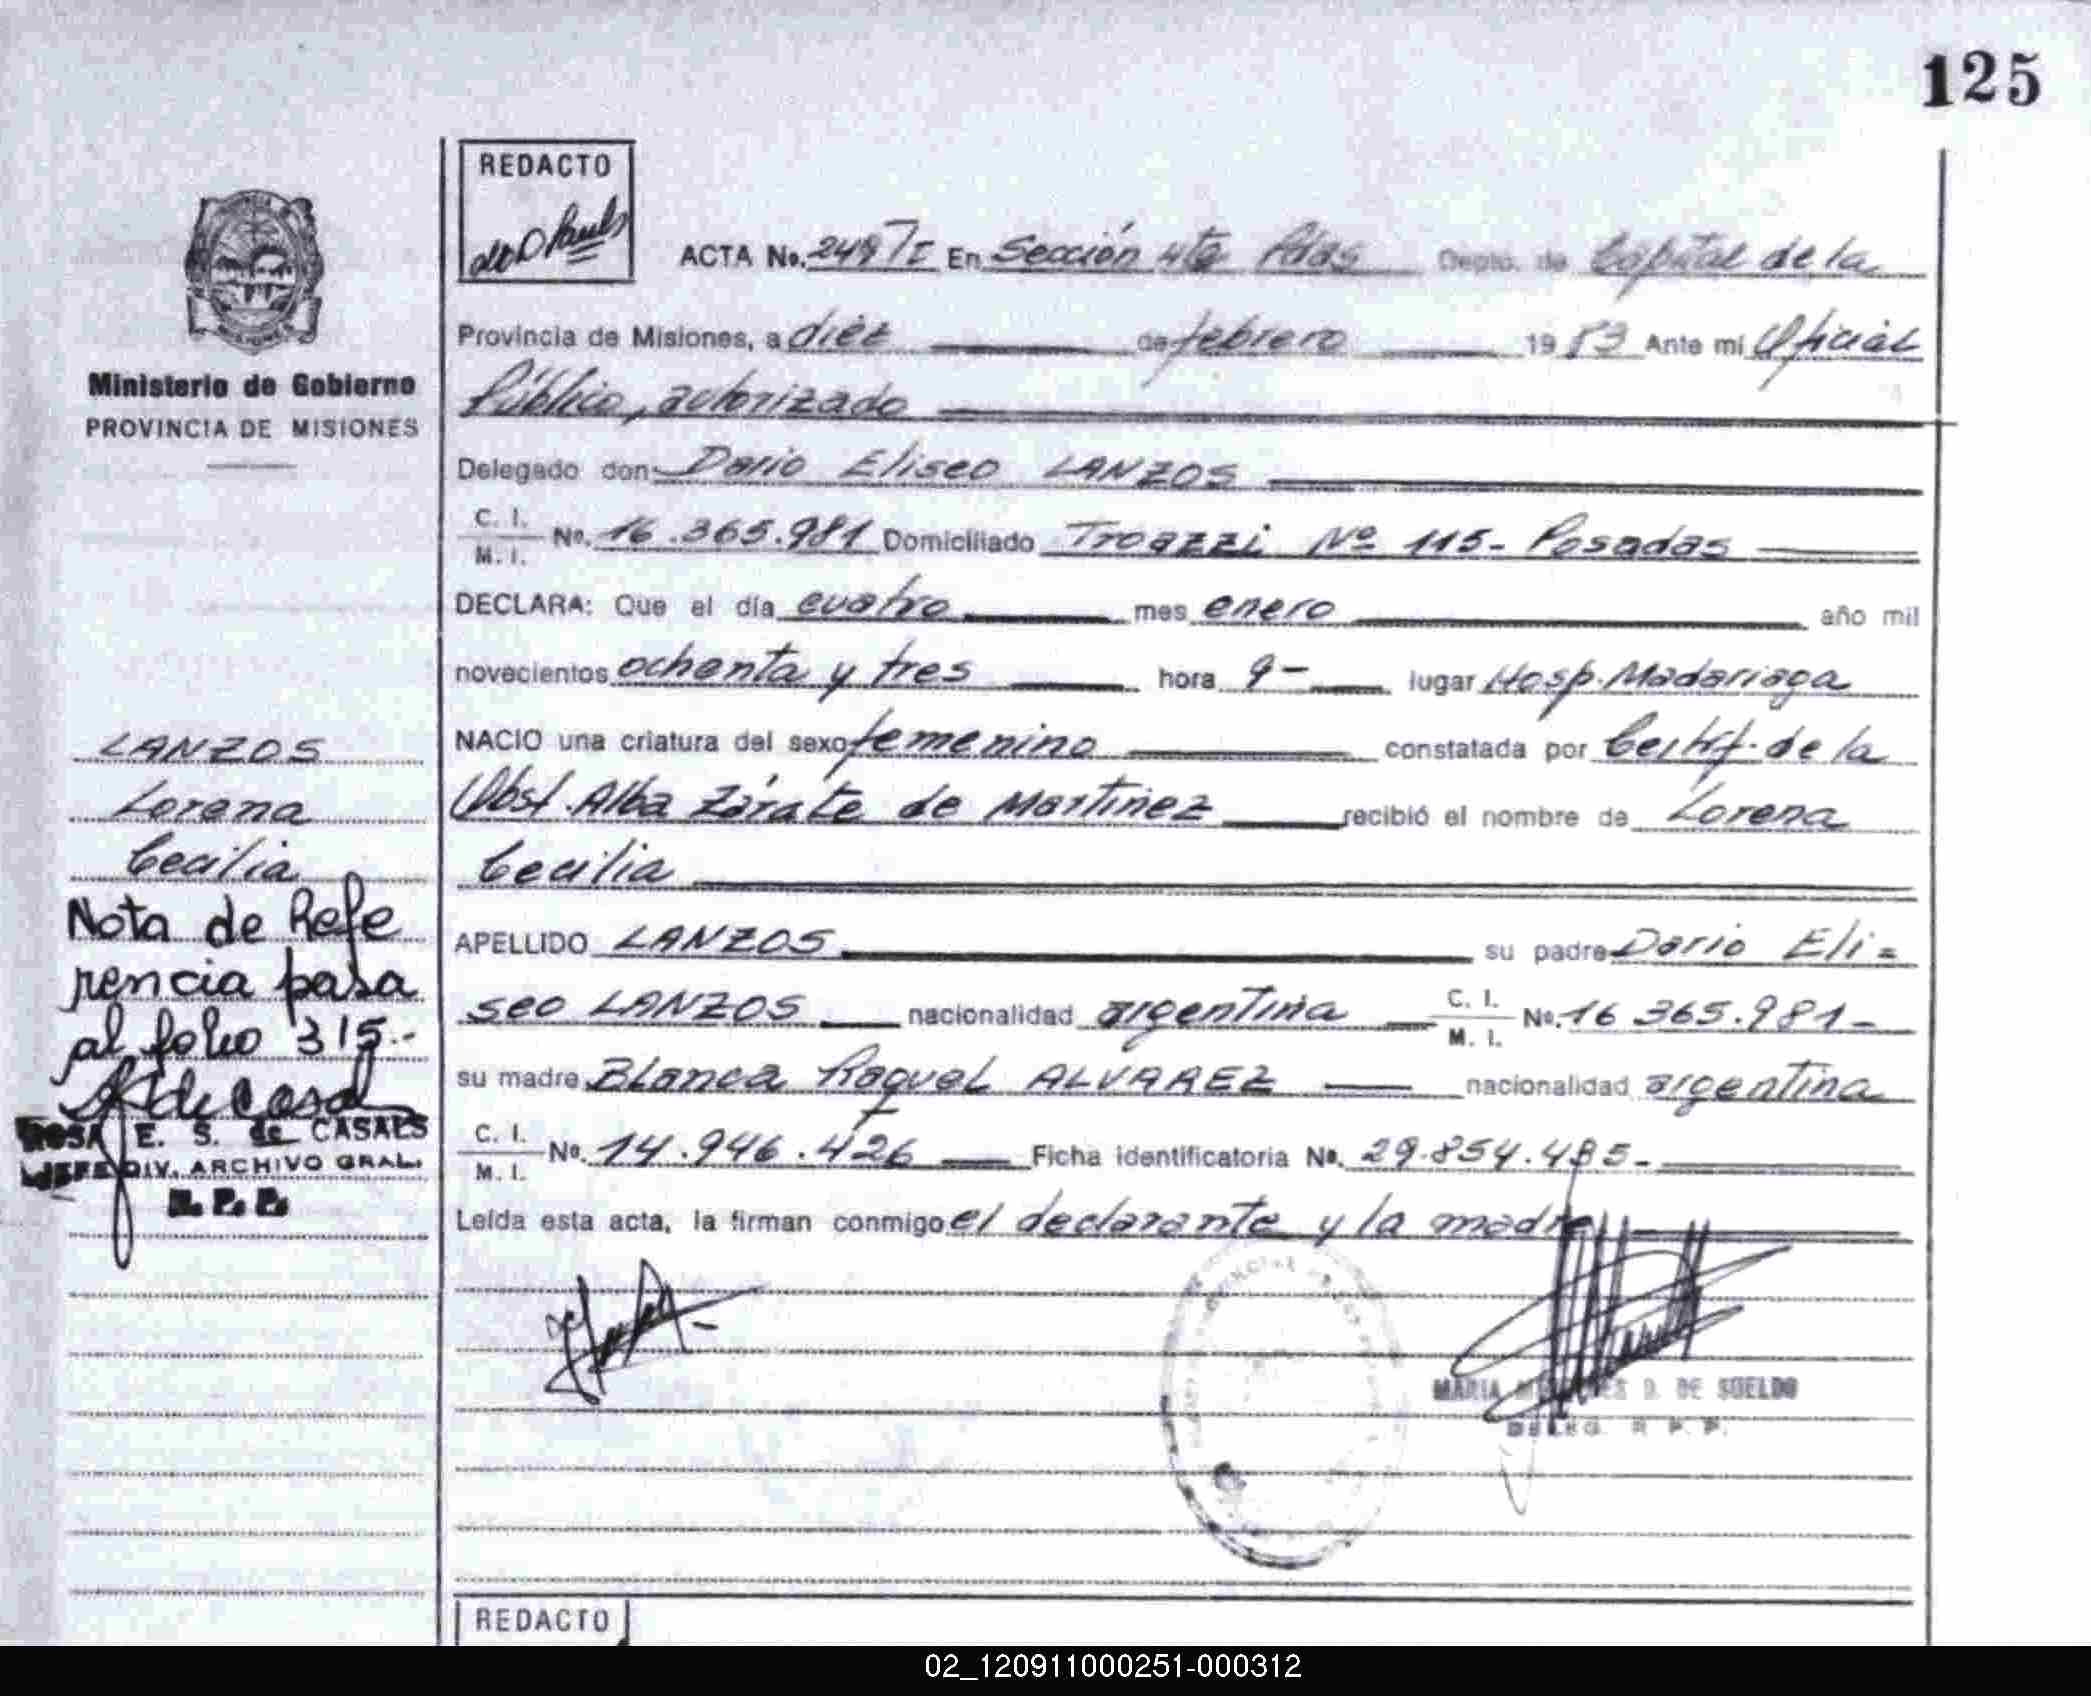 125
REDACTO
ACTA No. 249 7/I En Sección 4ta Pdas Depto. de Capital de la
Provincia de Misiones, a diez de febrero 1983 Ante mi Oficial
Público, autorizado
Ministerio de Gobierno
PROVINCIA DE MISIONES
Delegado don Dario Eliseo LANZOS
C. I.
M. I. No. 16.365.981 Domiciliado Troazzi Nº 115- Posadas
DECLARA: Que el día cuatro mes enero año mil
novecientos ochenta y tres hora 9- lugar Hosp. Madariaga
NACIO una criatura del sexo femenino constatada por Certif. de la
Obst. Alba Zárate de Martinez recibió el nombre de Lorena
Cecilia
APELLIDO LANZOS su padre Dario Eli=
seo LANZOS nacionalidad argentina C. I.
M. I. No. 16 365.981-
su madre Blanca Raquel ALVAREZ nacionalidad argentina
C. I.
M. I. No. 14.946.426 Ficha identificatoria No. 29.854.485-
Leída esta acta, la firman conmigo el declarante y la madre
LANZOS
Lorena
Cecilia
Nota de Refe
rencia pasa
al folio 315.-
ROSA E. S. de CASALS
JEFE DIV. ARCHIVO GRAL.
R. P. P.
MARIA D. DE SUELDO
DELEG. R. P. P.
REDACTO
02_120911000251-000312